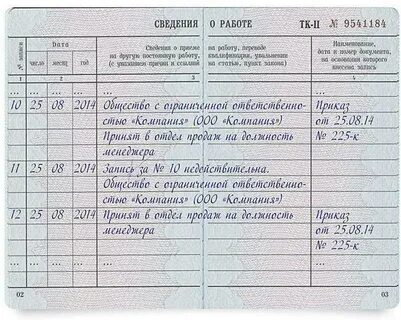 СВЕДЕНИЯ О РАБОТЕ ТК-II № 9541184
№ записи
Дата
Сведения о приеме на работу, переводе
на другую постоянную работу, квалификации, увольнении
(с указанием причин и ссылкой на статью, пункт закона)
Наименование,
дата и номер документа,
на основании которого
внесена запись
число месяц год
1 2 3 4
... ... ... ...
10 25 08 2014 Общество с ограниченной ответственно-
стью «Компания» (ООО «Компания») Приказ
от 25.08.14
Принят в отдел продаж на должность № 225-к
менеджера
11 25 08 2014 Запись за № 10 недействительна.
Общество с ограниченной ответственно-
стью «Компания» (ООО «Компания»)
12 25 08 2014 Принят в отдел продаж на должность Приказ
менеджера от 25.08.14
№ 225-к
... ... ... ...
02 03